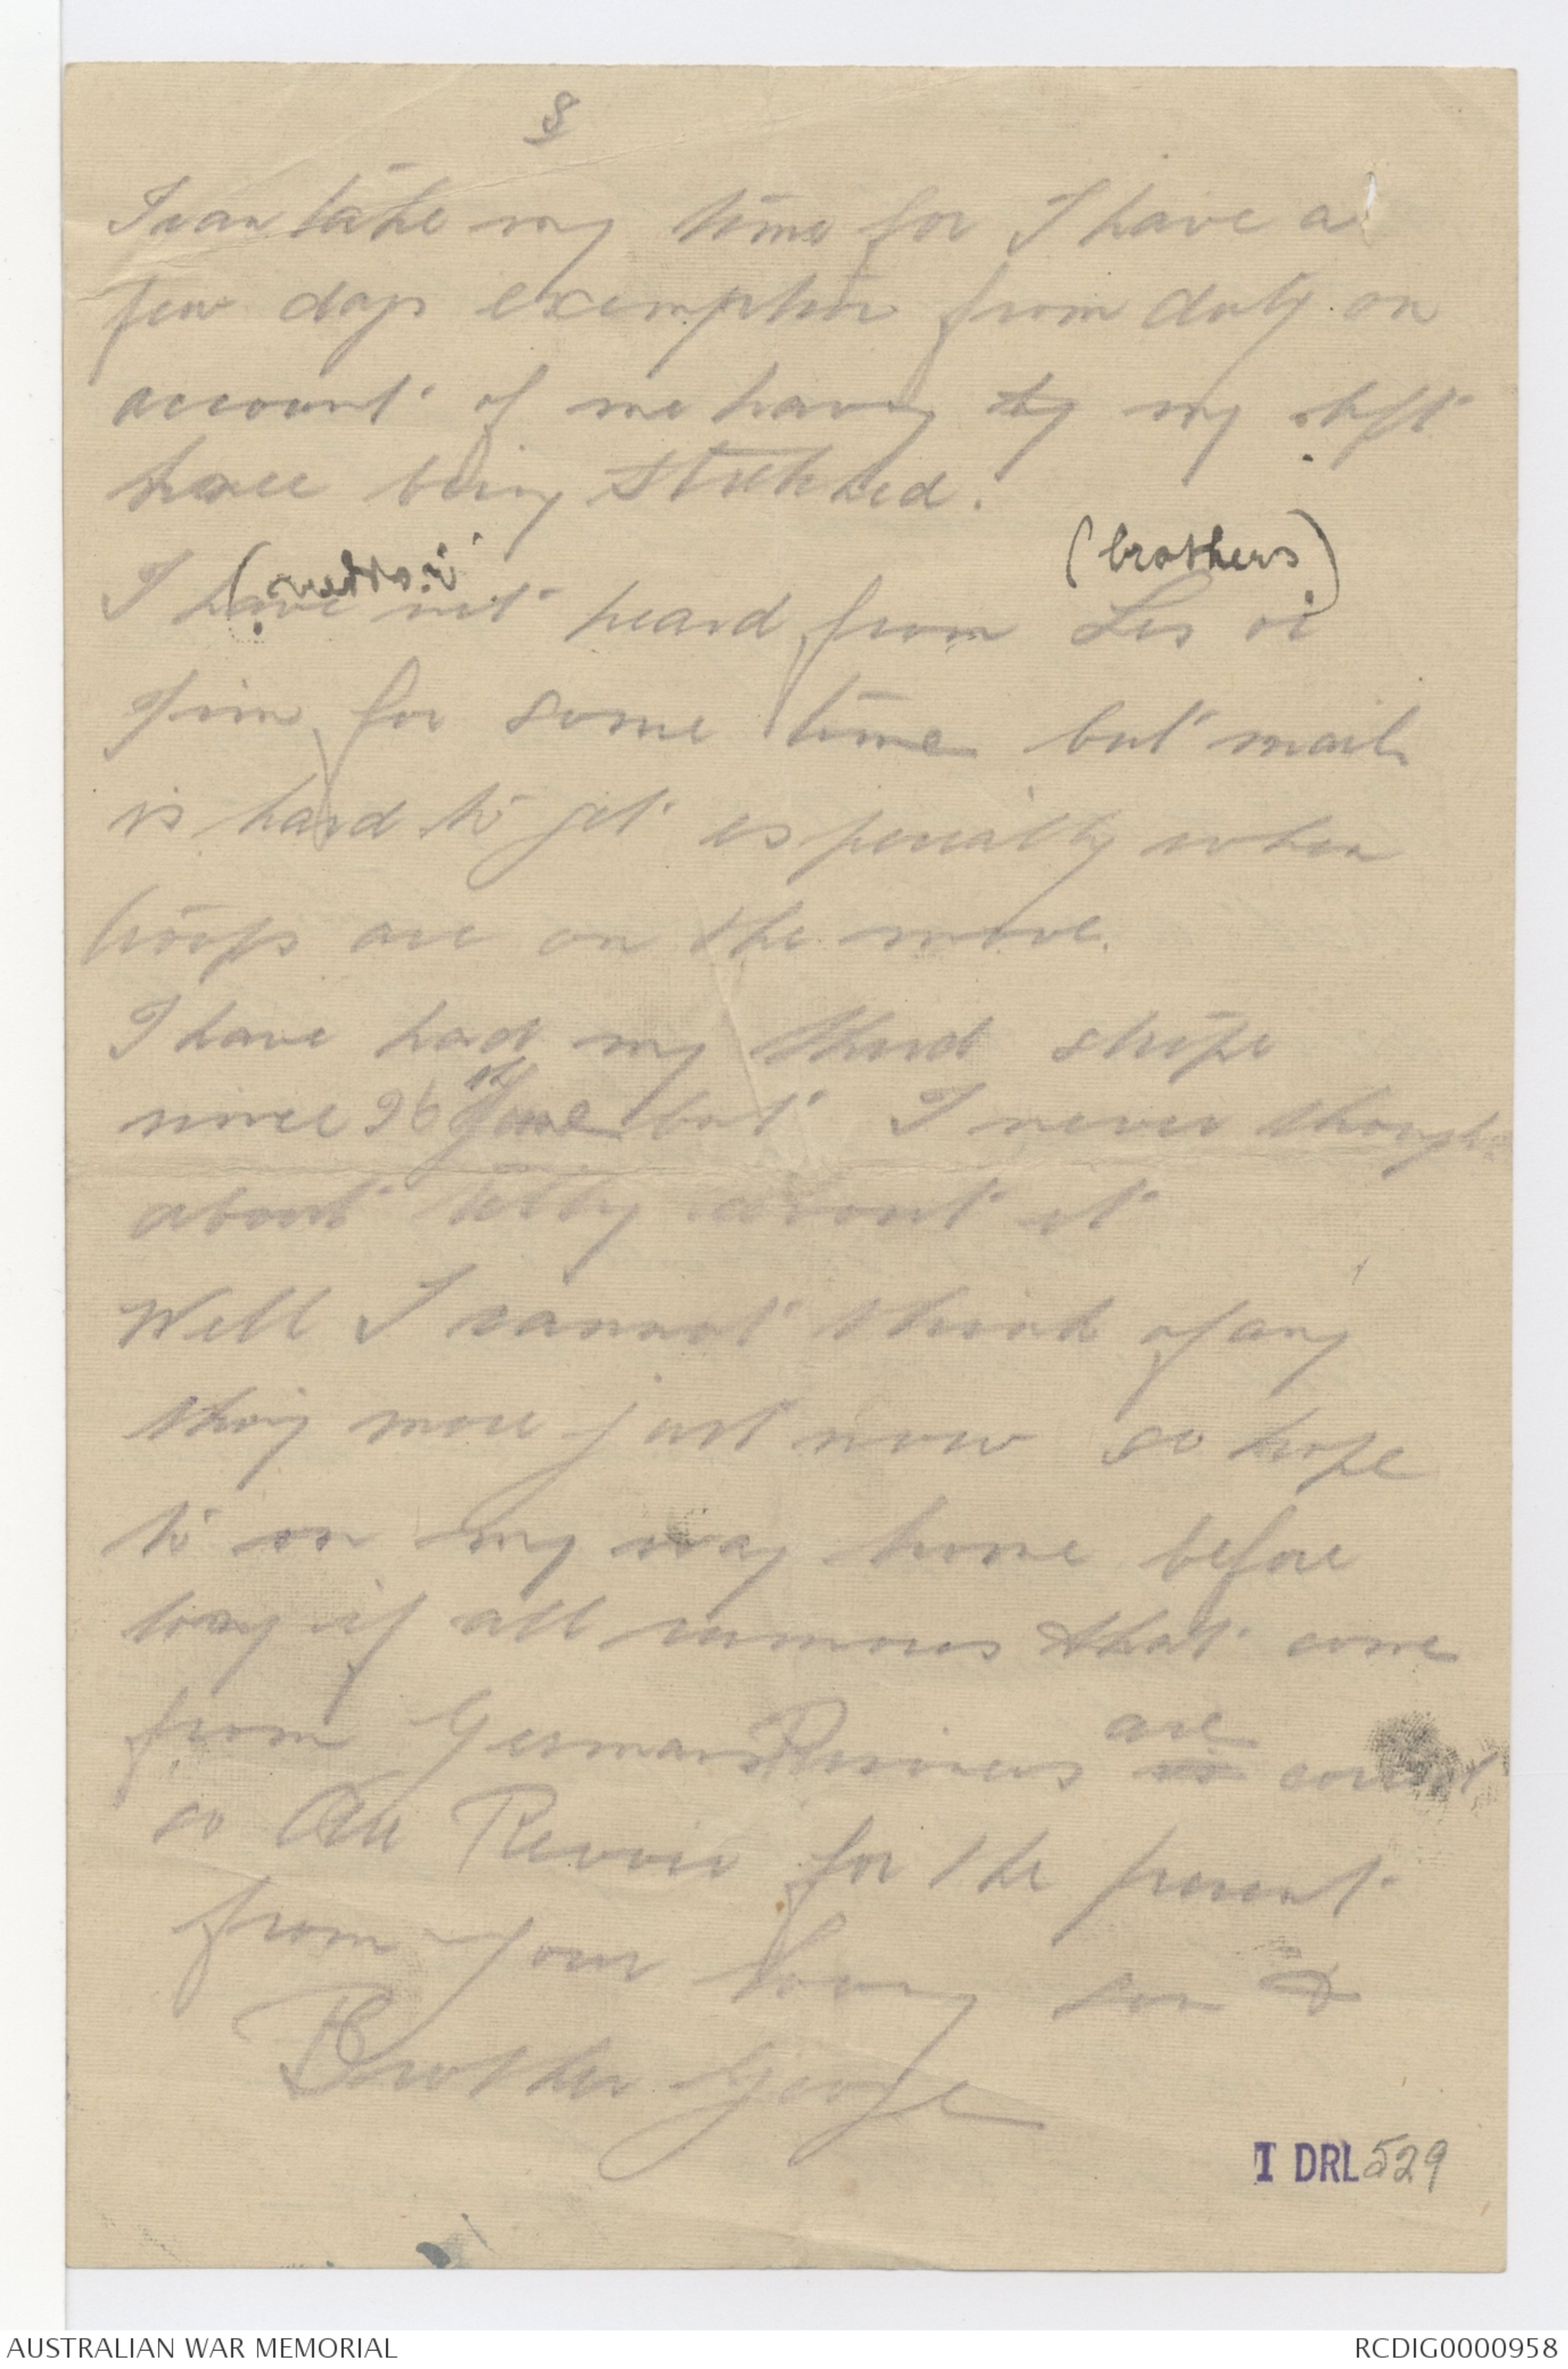 8
I can take my time for I have a
few days exemption from duty on
account of me having by my left
knee being stretched.
(brothers)
I have not heard from Les or
Jim for some time but mail
is hard to get especially when
troops are on the move.
I have had my third stripe
since 26th June but I never thought
about telling about it
Well I cannot think of any
thing more just now so hope
to on my way home before
long if all rumours that come
from German Prisoners are correct
so Au Revoir for the present
from your loving son &
Brother George
1 DRL 529
AUSTRALIAN WAR MEMORIAL
RCDIG0000958